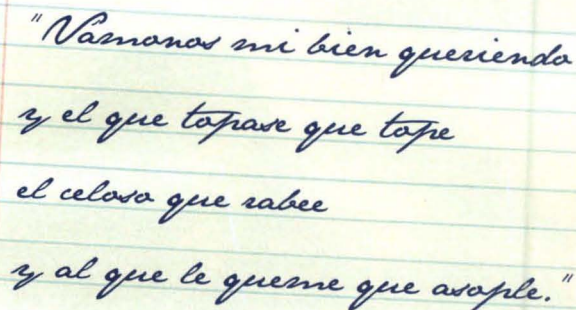 "Vamonos mi bien queriendo
y el que topase que tope
el celoso que rabee
y al que le queme que asople."